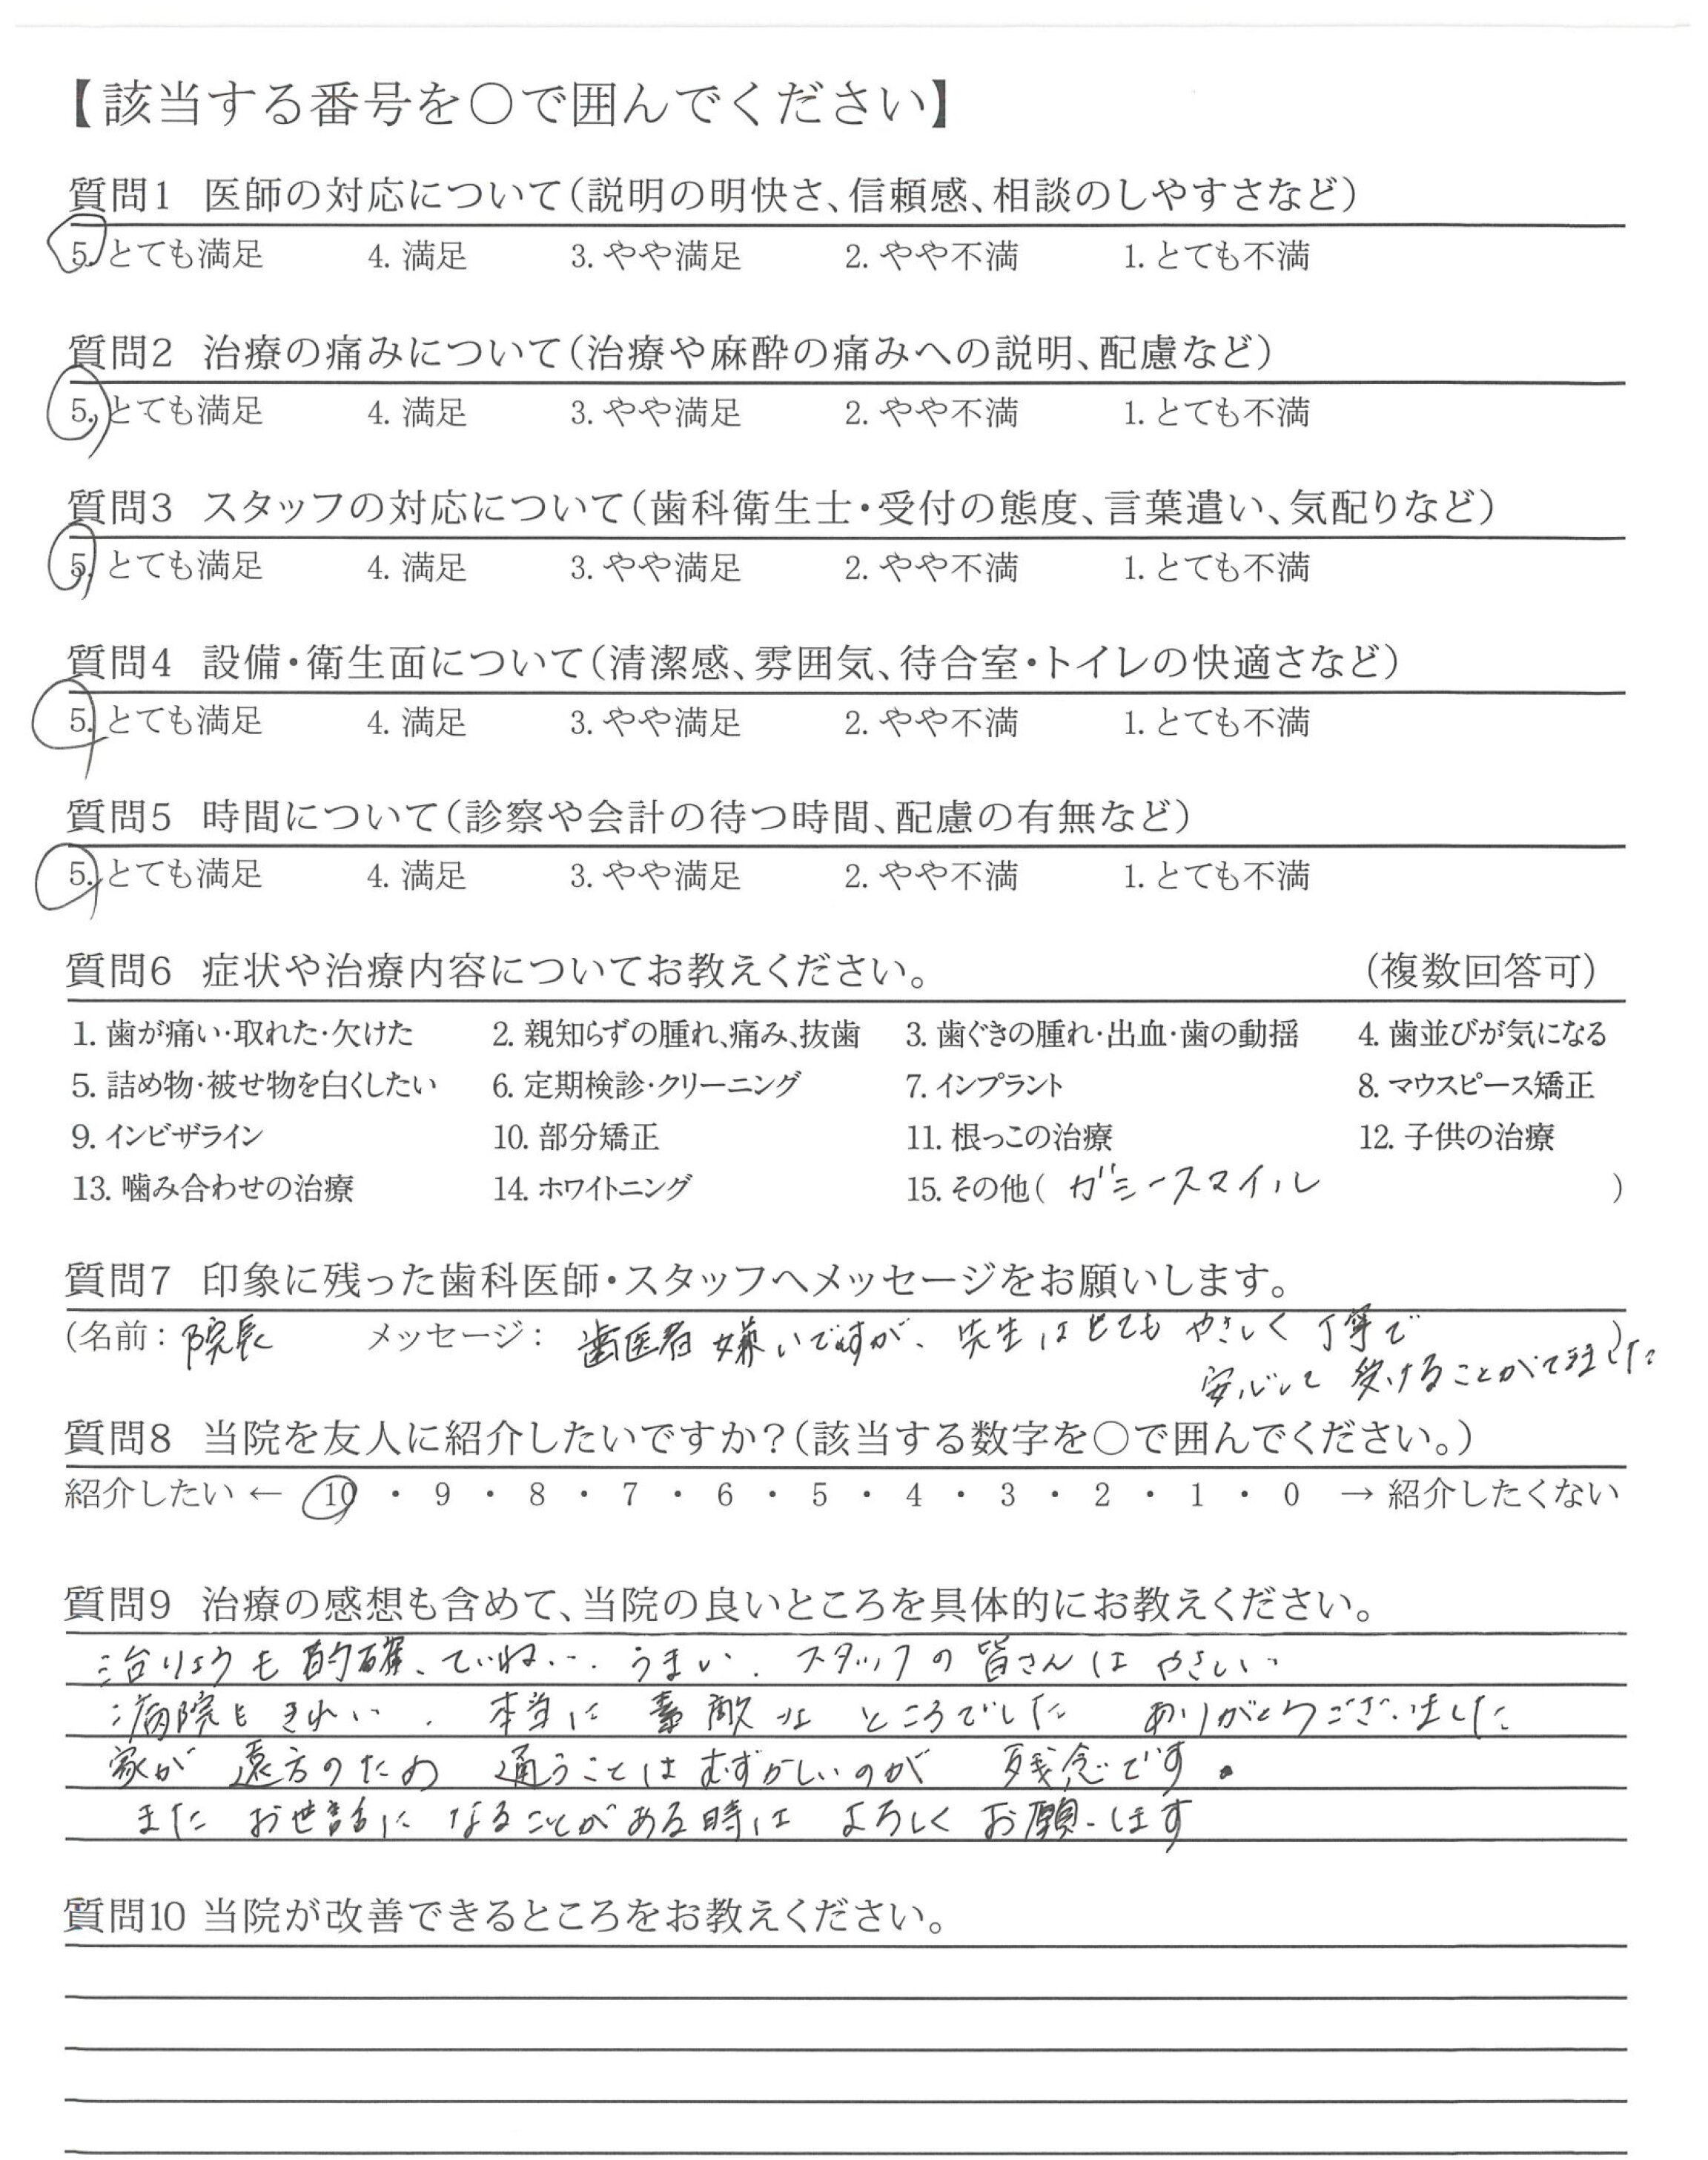 【該当する番号を〇で囲んでください】
質問1 医師の対応について(説明の明快さ、信頼感、相談のしやすさなど)
5. とても満足 4. 満足 3. やや満足 2. やや不満 1. とても不満
質問2 治療の痛みについて(治療や麻酔の痛みへの説明、配慮など)
5. とても満足 4. 満足 3. やや満足 2. やや不満 1. とても不満
質問3 スタッフの対応について(歯科衛生士・受付の態度、言葉遣い、気配りなど)
5. とても満足 4. 満足 3. やや満足 2. やや不満 1. とても不満
質問4 設備・衛生面について(清潔感、雰囲気、待合室・トイレの快適さなど)
5. とても満足 4. 満足 3. やや満足 2. やや不満 1. とても不満
質問5 時間について(診察や会計の待つ時間、配慮の有無など)
5. とても満足 4. 満足 3. やや満足 2. やや不満 1. とても不満
質問6 症状や治療内容についてお教えください。 (複数回答可)
1. 歯が痛い・取れた・欠けた 2. 親知らずの腫れ、痛み、抜歯 3. 歯ぐきの腫れ・出血・歯の動揺 4. 歯並びが気になる
5. 詰め物・被せ物を白くしたい 6. 定期検診・クリーニング 7. インプラント 8. マウスピース矯正
9. インビザライン 10. 部分矯正 11. 根っこの治療 12. 子供の治療
13. 噛み合わせの治療 14. ホワイトニング 15. その他( ガミースマイル )
質問7 印象に残った歯科医師・スタッフへメッセージをお願いします。
(名前: 院長 メッセージ: 歯医者嫌いですが、先生はとてもやさしく丁寧で )
安心して受けることができました
質問8 当院を友人に紹介したいですか?(該当する数字を〇で囲んでください。)
紹介したい ← 10 ・ 9 ・ 8 ・ 7 ・ 6 ・ 5 ・ 4 ・ 3 ・ 2 ・ 1 ・ 0 → 紹介したくない
質問9 治療の感想も含めて、当院の良いところを具体的にお教えください。
治りょうも的確、ていねい。うまい。スタッフの皆さんはやさしい。
病院もきれい。本当に素敵なところでした ありがとうございました
家が遠方のため 通うことはむずかしいのが 残念です。
また お世話に なることがある時は よろしくお願いします
質問10 当院が改善できるところをお教えください。